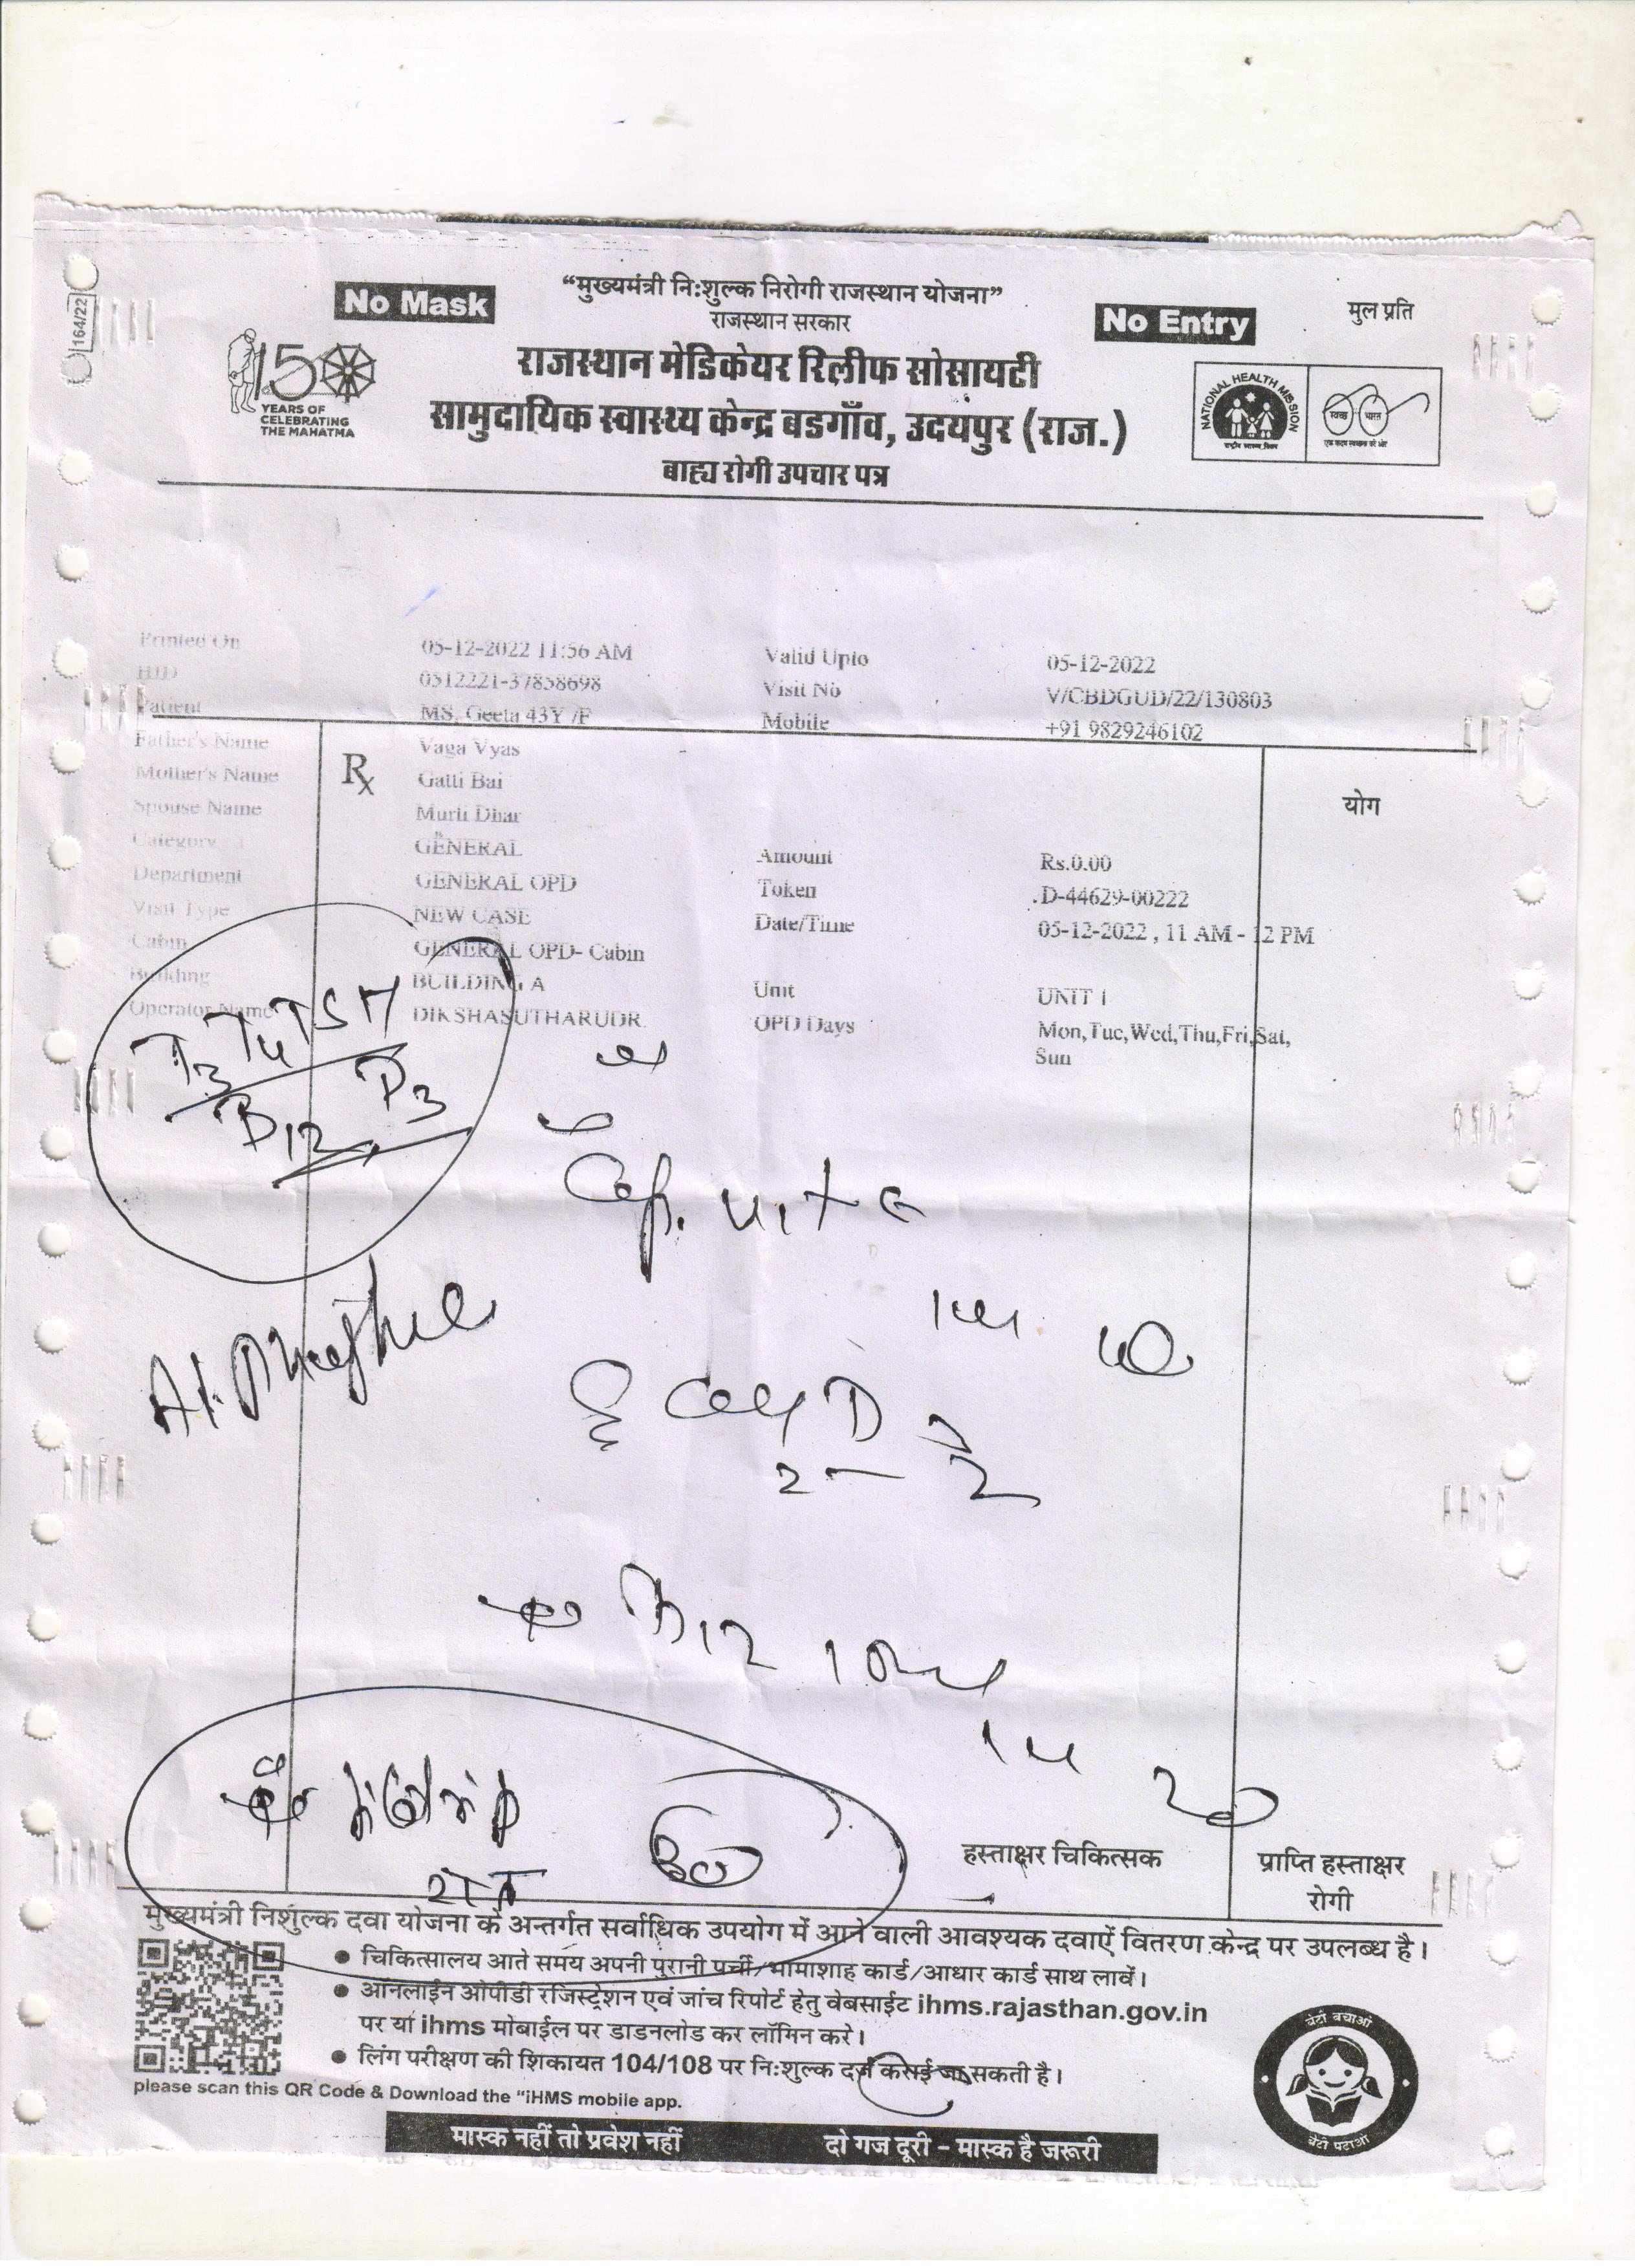 164/22
No Mask
“मुख्यमंत्री नि:शुल्क निरोगी राजस्थान योजना”
राजस्थान सरकार
No Entry
मुल प्रति
150
YEARS OF
CELEBRATING
THE MAHATMA
राजस्थान मेडिकेयर रिलीफ सोसायटी
सामुदायिक स्वास्थ्य केन्द्र बडगाँव, उदयपुर (राज.)
बाह्य रोगी उपचार पत्र
NATIONAL HEALTH MISSION
राष्ट्रीय स्वास्थ्य मिशन
स्वच्छ भारत
एक कदम स्वच्छता की ओर
Printed On 05-12-2022 11:56 AM Valid Upto 05-12-2022
HID 0512221-37858698 Visit No V/CBDGUD/22/130803
Patient MS. Geeta 43Y /F Mobile +91 9829246102
Father's Name Vaga Vyas
Mother's Name Rx Gatti Bai
Spouse Name Murli Dhar योग
Category GENERAL Amount Rs.0.00
Department GENERAL OPD Token D-44629-00222
Visit Type NEW CASE Date/Time 05-12-2022 , 11 AM - 12 PM
Cabin GENERAL OPD- Cabin
Building BUILDING A Unit UNIT 1
Operator Name DIKSHASUTHARUDR OPD Days Mon,Tue,Wed,Thu,Fri,Sat,
Sun
T3 T4 TSH
B12 D3
Cap. Vit E
D3
B12
हस्ताक्षर चिकित्सक
प्राप्ति हस्ताक्षर
रोगी
मुख्यमंत्री निशुल्क दवा योजना के अन्तर्गत सर्वाधिक उपयोग में आने वाली आवश्यक दवाऐं वितरण केन्द्र पर उपलब्ध है।
● चिकित्सालय आते समय अपनी पुरानी पर्ची/भामाशाह कार्ड/आधार कार्ड साथ लावें।
● ऑनलाईन ओपीडी रजिस्ट्रेशन एवं जांच रिपोर्ट हेतु वेबसाईट ihms.rajasthan.gov.in
पर या ihms मोबाईल पर डाडनलोड कर लॉगिन करे।
● लिंग परीक्षण की शिकायत 104/108 पर नि:शुल्क दर्ज कराई जा सकती है।
please scan this QR Code & Download the “iHMS mobile app.
बेटी बचाओ
बेटी पढाओ
मास्क नहीं तो प्रवेश नहीं दो गज दूरी – मास्क है जरूरी